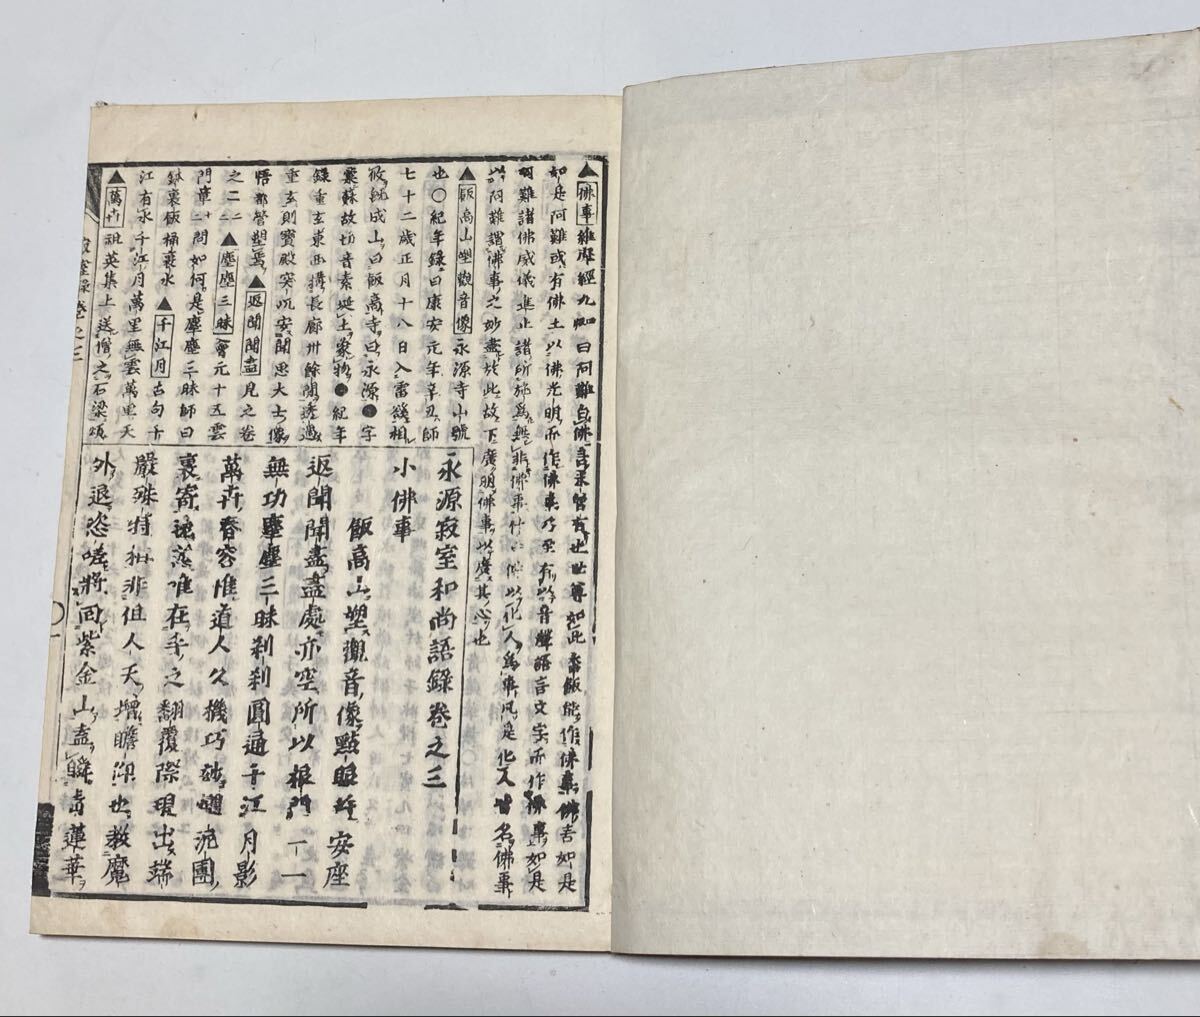 ▲佛事維摩經九曰阿難白佛言未曾有也世尊如此香飯能作佛事佛言如是
如是阿難或有佛土以佛光明而作佛事乃至有以音聲語言文字而作佛事如是
阿難諸佛威儀進止諸所施爲無非佛事
以阿難謂佛事之妙盡於此故下廣明佛事以廣其心也
▲飯高山塑觀音像永源寺山號
也〇紀年錄曰康安元年辛丑師
七十二歲正月十八日入雷谿相
攸既成山曰飯高寺曰永源●字
彙蘇故切音素埏土象物●紀年
錄重玄東西搆長廊卅餘間透過
重玄則寶殿突兀安聞思大士像
悟都管塑焉▲返聞聞盡見之卷
之二二▲塵塵三昧會元十五雲
門章二問如何是塵塵三昧師曰
鉢裏飯桶裏水▲千江月古句千
江有水千江月萬里無雲萬里天
▲萬卉祖英集上送僧之石梁頌
永源寂室和尚語錄卷之三
小佛事
飯高山塑觀音像點眼安座
返聞聞盡盡處亦空所以根門一一
無功塵塵三昧刹刹圓通千江月影
萬卉春容惟道人久機巧
裏寄唯在手之翻覆際現出端
嚴殊特相非但人天增瞻仰也教魔
外退恣嗟將同紫金山盍瞬青蓮華